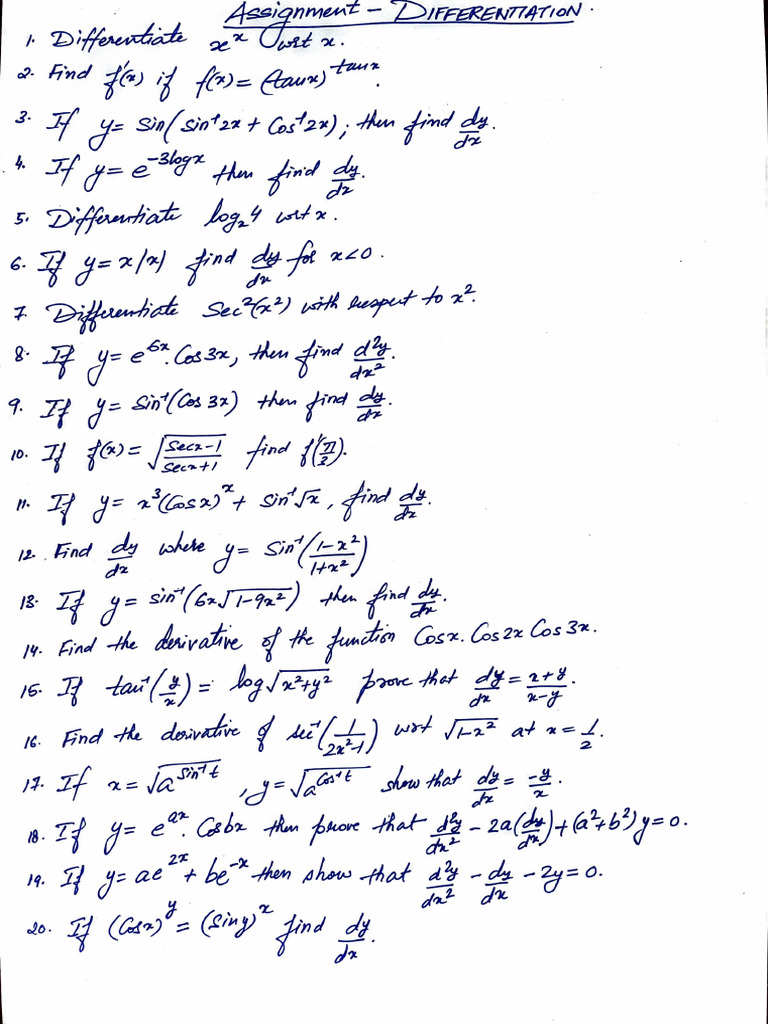 Assignment - DIFFERENTIATION.
1. Differentiate xˣ wrt x.
2. Find f'(x) if f(x) = (tanx)^tanx.
3. If y = sin(sin⁻¹2x + Cos⁻¹2x); then find dy/dx.
4. If y = e^-3logx then find dy/dx.
5. Differentiate log₂4 wrt x.
6. If y = x|x| find dy/dx for x<0.
7. Differentiate Sec²(x²) with respect to x².
8. If y = e^6x. Cos3x, then find d²y/dx².
9. If y = Sin⁻¹(Cos 3x) then find dy/dx.
10. If f(x) = √((Secx-1)/(Secx+1)) find f'(π/3).
11. If y = x³(Cosx)ˣ + Sin⁻¹√x, find dy/dx.
12. Find dy/dx where y = Sin⁻¹((1-x²)/(1+x²))
13. If y = sin⁻¹(6x√(1-9x²)) then find dy/dx.
14. Find the derivative of the function Cosx. Cos2x Cos3x.
15. If tan⁻¹(y/x) = log√(x²+y²) prove that dy/dx = (x+y)/(x-y).
16. Find the derivative of sec⁻¹(1/(2x²-1)) wrt √(1-x²) at x = 1/2.
17. If x = √(a^Sin⁻¹t), y = √(a^Cos⁻¹t) show that dy/dx = -y/x.
18. If y = e^ax. Cosbx then prove that d²y/dx² - 2a(dy/dx) + (a²+b²)y = 0.
19. If y = ae^2x + be^-x then show that d²y/dx² - dy/dx - 2y = 0.
20. If (Cosx)^y = (Siny)^x find dy/dx.